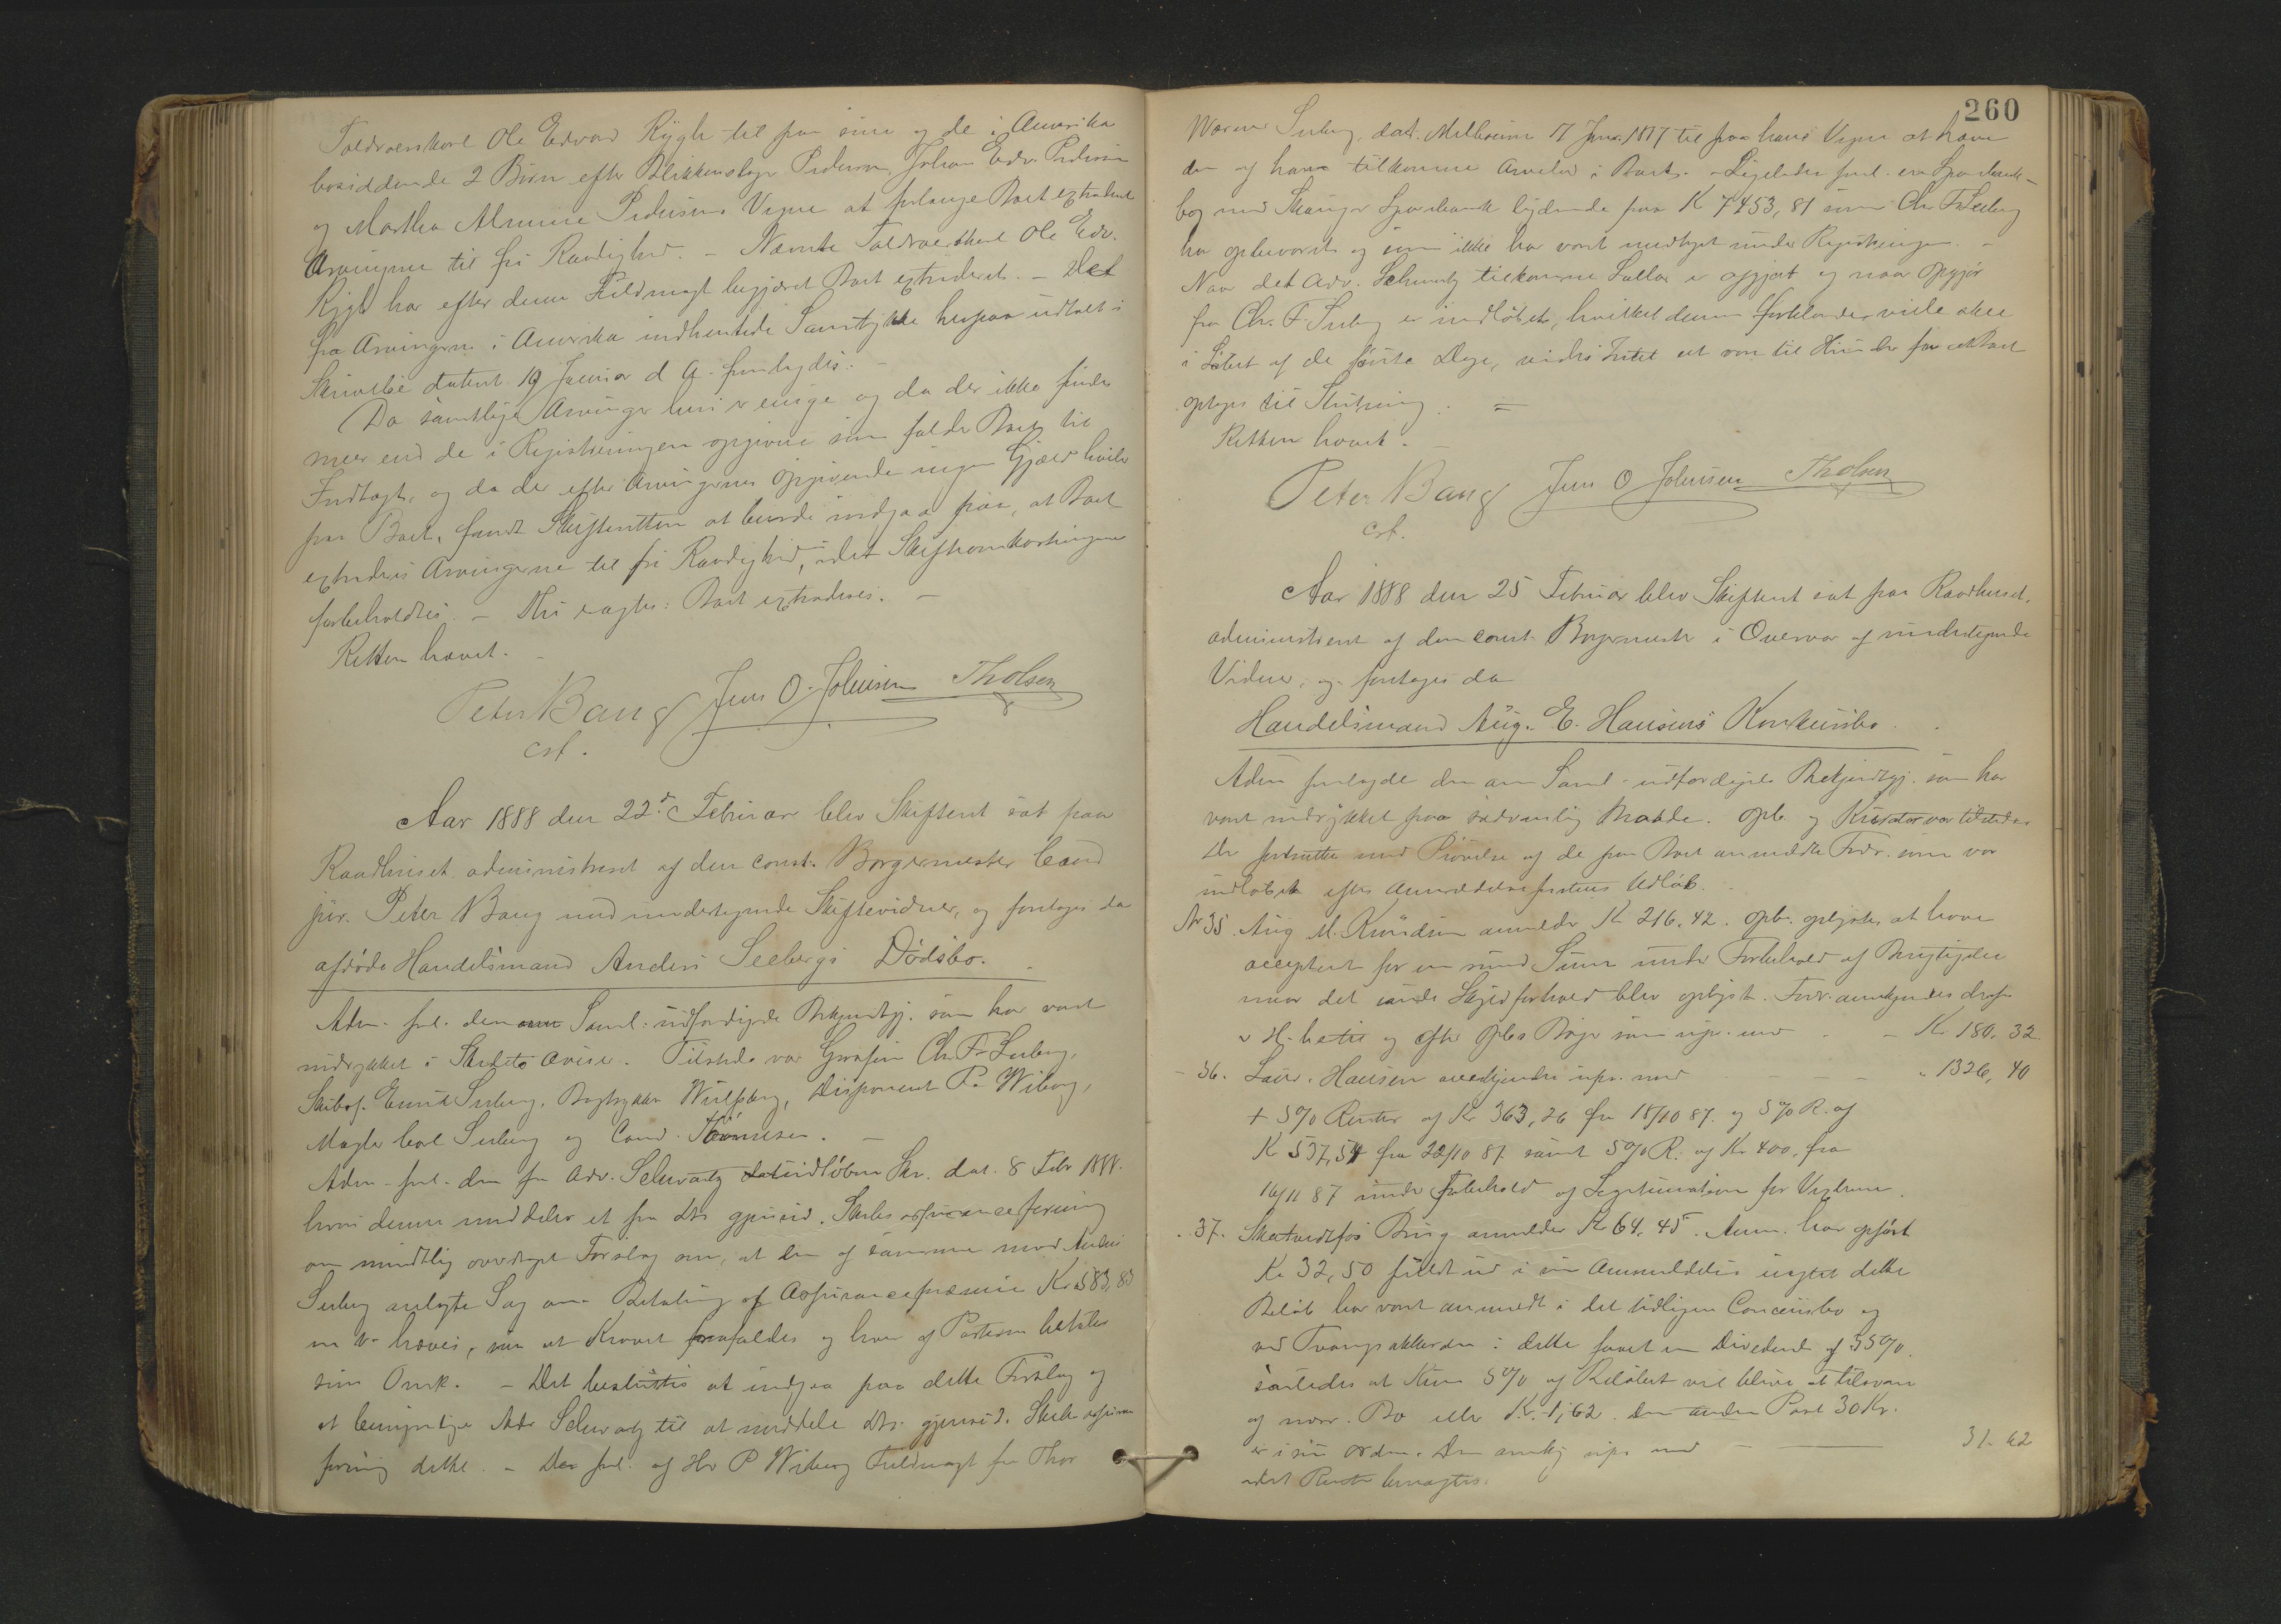 Toldroerskarl Ole Edvard Rygh til paa sine og de i Amerika
besiddende 2 Børn efter Blikkenslager Pedersen, Johan Edv. Pedersen
og Martha Almine Pedersens Vegne at forlange Boet extraderet
Arvingerne til fri Raadighed. – Nævnte Toldroerskarl Ole Edv.
Rygh har efter denne Fuldmagt begjæret Boet extraderet. – Det
fra Arvingerne i Amerika indhentede Samtykke herpaa udtalt i
Skrivelse dateret 19 Januar d. A. fremlagdes. –
Da samtlige Arvinger heri er enige og da der ikke findes
meer end de i Registreringen opgivne som falde Boet til
Indtægt, og da der efter Arvingernes Opgivende ingen Gjæld hviler
paa Boet, fandt Skifteretten at burde indgaa paa, at Boet
extraderes Arvingerne til fri Raadighed, idet Skifteomkostningerne
forbeholdtes. – Thi eragtes: Boet extraderes. –
Retten hævet. –
Peter Bang Jens O. Johnsen Tholsen
cst.
Aar 1888 den 22de Februar blev Skifteret sat paa
Raadhuset administreret af den const. Borgermester Cand
jur. Peter Bang med undertegnede Skiftevidner, og foretoges da
afdøde Handelsmand Anders Seebergs Dødsbo.
Adm. frl. den Saml. udfærdigede Bekjendtgj. som har vært
indrykket i Stedets Aviser. Tilstede var Ch. Fr. Seeberg,
Skibsf. Emil Seeberg, Bogtrykker Wulfsberg, Disponent P. Wiborg,
Mægler Carl Seeberg og Cand. Thommesen. –
Adm. frl. den fra Adv. Schwartz indløbne Skr. dat. 8 Febr 1888.
hvori denne meddeler et fra Den gjensid. Skibsassuranceforening
om mindtlig overdraget Forslag om, at den af samme mod Anders
Seeberg anlagte Sag om Betaling af Assurancepræmie Kr 583,83
hæves, saa at Kravet frafaldes og hver af Parterne betaler
sine Omk. – Det besluttes at indgaa paa dette Forslag og
at bemyndige Adv. Schwartz til at meddele Den gjensid. Skibsassurance
forening dette. – Der frl. af Hr P Wiborg Fuldmagt fra Thor
260
Werner Seeberg, dat. Melbourne 17 Janr. 1887 til paa hans Vegne at hæve
den af ham tilkomne Arvelod i Boet. – Ligeledes frl. en Sparebank-
bog med Skanger Sparebank lydende paa K 7453,81 som Chr. F. Seeberg
har opbevaret og som ikke har vært medtaget under Registreringen. –
Naar det Adv. Schwartz tilkomne Salær er opgjort og naar Opgjør
fra Chr. F. Seeberg er indløbet, hvilket denne forklarede vilde skee
i Løbet af de første Dage, vides Intet at være til Hinder for at Boet
optages til Slutning. =
Retten hævet. –
Peter Bang Jens O Johnsen Tholsen
cst.
Aar 1888 den 25 Februar blev Skifteret sat paa Raadhuset,
administreret af den const. Borgermester i Overvær af undertegnede
Vidner, og foretoges da
Handelsmand Aug. E. Hansens Konkursbo.
Adm fremlagde den om Saml. udfærdigede Bekjendtgj. som har
vært indrykket paa sædvanlig Maade. Opb. og Kurator var tilstede.
Der fortsattes med Prøvelse af de paa Boet anmeldte Fodr. som var
indløbet efter Anmeldelsesfristens Udløb.
Nr 35. Aug M. Knudsen anmelder K 216,42. Opb. oplyste at have
acceptert for en rund Sum under Forbehold af Rigtigheden
naar det sande Skyldforhold blev oplyst. Fodr. anerkjendes
og efter Opbs Bøger som upr. med – Kr 180.32.
– 36. Laur. Hansen anerkjendes upr. med – – – " 1326,40
+ 5% Renter af Kr 363,26 fra 18/10 87. og 5% R. af
K 537,54 fra 22/10 87 samt 5% R. af Kr 400, fra
16/11 87 under Forbehold af Legitimation for Vexlerne.
. 37. Skotselvfos Brug anmelder Kr 64,45. Anm. har opført
Kr 32,50 fuldt ud i sin Anmeldelse uagtet dette
Beløb har vært anmeldt i det tidligere Concursbo og
ved Tvangsakkorden i dette faaet en Dividende af 35%.
saaledes at kun 5% af Beløbet vil blive at tilsvare
af nærv. Bo eller Kr. 1,62. Den anden Post 30 Kr.
er i sin Orden. Den anerkj upr. med 31.62
idet Rente benægtes.